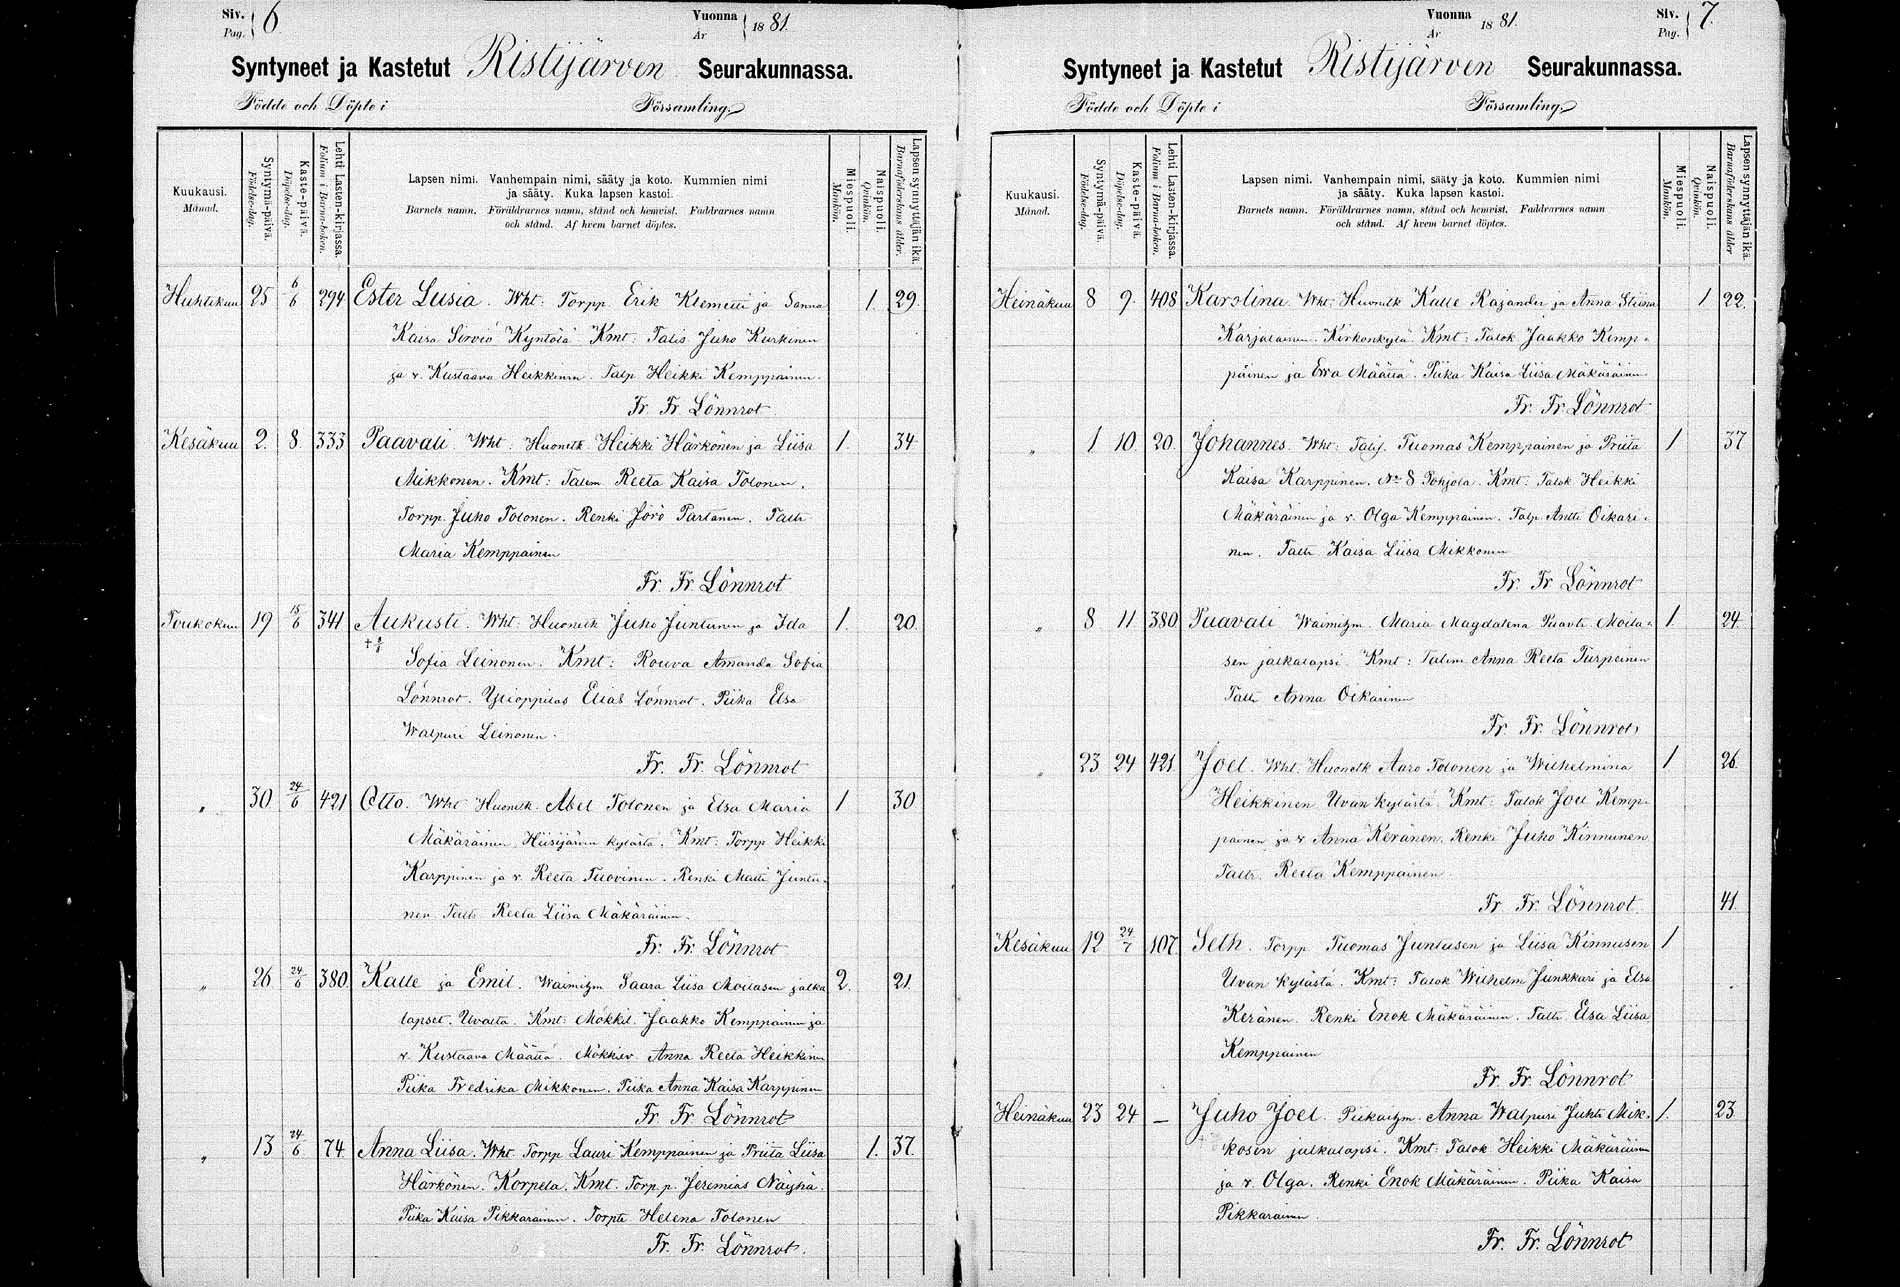 Siv. Pag. 6. Vuonna År 1881.
Syntyneet ja Kastetut Ristijärven Seurakunnassa.
Födde och Döpte i Församling.
Kuukausi. Månad. Syntymä-päivä. Födelse-dag. Kaste-päivä. Döpelse-dag. Lehti Lasten-kirjassa. Folium i Barna-boken. Lapsen nimi. Vanhempain nimi, sääty ja koto. Kummien nimi ja sääty. Kuka lapsen kastoi. Miespuoli. Mankön. Naispuoli. Qvinkön. Lapsen synnyttäjän ikä. Barnaföderskans ålder.
Barnets namn. Föräldrarnes namn, stånd och hemvist. Faddrarnes namn
och stånd. Af hvem barnet döptes.
Huhtikuu 25 6/6 294 Ester Lusia. Wht: Torpp. Erik Klemetti ja Sanna 1. 29.
Kaisa Sirviö Kyntölä Kmt: Talis Juho Kurkinen
ja v. Kustaava Heikkinen. Talp Heikki Kemppainen.
Fr. Fr. Lönnrot
Kesäkuu 2. 8. 333 Paavali. Wht. Huonelk Heikki Härkönen ja Liisa 1. 34.
Mikkonen. Kmt: Talem Reeta Kaisa Tolonen.
Torpp. Juho Tolonen. Renki Jörö Partanen. Taltr
Maria Kemppainen
Fr. Fr. Lönnrot
Toukokuu 19 15/6 341 Aukusti. Wht: Huonelk Juho Juntunen ja Ida 1. 20.
Sofia Leinonen. Kmt: Rouva Amanda Sofia
Lönnrot. Ylioppilas Elias Lönnrot. Piika Elsa
Walpuri Leinonen.
Fr. Fr. Lönnrot
" 30. 24/6 421 Otto. Wht Huonelk. Abel Tolonen ja Elsa Maria 1 30.
Mäkäräinen Hiisijärven kylästä. Kmt: Torpp Heikki
Karppinen ja v. Reeta Tuovinen. Renki Matti Juntu-
nen Taltr Reeta Liisa Mäkäräinen.
Fr. Fr. Lönnrot
" 26. 24/6 380. Kalle ja Emil. Waimizm Saara Liisa Moilasen jalka 2. 21.
lapset. Uvalta. Kmt: Mökkil. Jaakko Kemppainen ja
v. Kustaava Määttä. Mökkiv. Anna Reeta Heikkinen
Piika Fredrika Mikkonen. Piika Anna Kaisa Karppinen
Fr. Fr. Lönnrot
" 13 24/6 74. Anna Liisa. Wht. Torpp Lauri Kemppainen ja Priita Liisa 1. 37.
Härkönen. Korpela. Kmt. Torp.p. Jeremias Näyhä.
Piika Kaisa Pikkarainen. Torptr Helena Tolonen
Fr. Fr. Lönnrot.
Vuonna År 1881. Siv. Pag. 7.
Syntyneet ja Kastetut Ristijärven Seurakunnassa.
Födde och Döpte i Församling.
Kuukausi. Månad. Syntymä-päivä. Födelse-dag. Kaste-päivä. Döpelse-dag. Lehti Lasten-kirjassa. Folium i Barna-boken. Lapsen nimi. Vanhempain nimi, sääty ja koto. Kummien nimi ja sääty. Kuka lapsen kastoi. Miespuoli. Mankön. Naispuoli. Qvinkön. Lapsen synnyttäjän ikä. Barnaföderskans ålder
Barnets namn. Föräldrarnes namn, stånd och hemvist. Faddrarnes namn
och stånd. Af hvem barnet döptes.
Heinäkuu 8 9. 408 Karolina. Wht: Huonelk Kalle Rajander ja Anna Stiina 1 22.
Karjalainen. Kirkonkylä. Kmt: Talok Jaakko Kemp-
painen ja Ewa Määttä. Piika Kaisa Liisa Mäkäräinen
Fr. Fr. Lönnrot
" 1 10. 20. Johannes. Wht: Talij. Tuomas Kemppainen ja Priita 1 37
Kaisa Karppinen. No 8 Pohjola. Kmt: Talok Heikki
Mäkäräinen ja v. Olga Kemppainen. Talp Antti Oikari-
nen. Taltr Kaisa Liisa Mikkonen
Fr. Fr. Lönnrot
" 8 11. 380 Paavali Waimizm. Maria Magdalena Paavtr Moila- 1. 24.
sen jalkalapsi. Kmt: Talem Anna Reeta Turpeinen
Taltr Anna Oikarinen
Fr Fr. Lönnrot
" 23 24 421. Joel. Wht. Huonelk Aaro Tolonen ja Wilhelmina 1 26.
Heikkinen Uvan kylästä. Kmt: Talok Joel Kemp-
painen ja v Anna Keränen. Renki Juho Kinnunen
Taltr. Reeta Kemppainen
Fr. Fr. Lönnrot. 41.
Kesäkuu 12 24/7 107. Seth. Torpp Tuomas Juntusen ja Liisa Kinnusen 1
Uvan kylästä. Kmt: Talok Wilhelm Junkkari ja Elsa
Keränen. Renki Enok Mäkäräinen. Taltr. Elsa Liisa
Kemppainen
Fr. Fr. Lönnrot
Heinäkuu 23 24 — Juho Joel. Piikaizm. Anna Walpuri Juhtr Mik- 1. 23
kosen jalkalapsi. Kmt: Talok Heikki Mäkäräinen
ja v. Olga. Renki Enok Mäkäräinen. Piika Kaisa
Pikkarainen.
Fr. Fr. Lönnrot